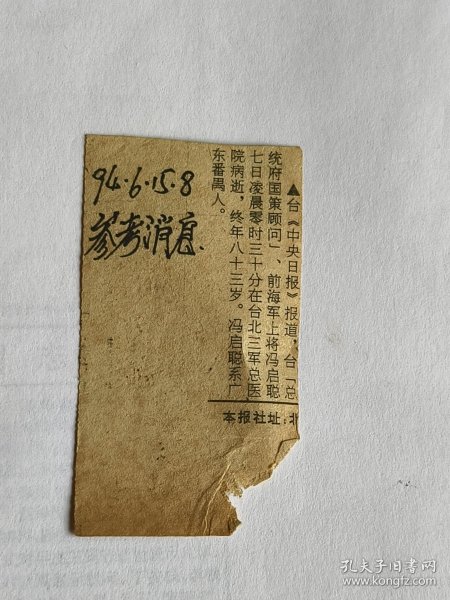 94.6.15.8
参考消息.
▲台《中央日报》报道，台「总
统府国策顾问」、前海军上将冯启聪
七日凌晨零时三十分在台北三军总医
院病逝，终年八十三岁。冯启聪系广
东番禺人。
本报社址：北
孔夫子旧书网
www.kongfz.com